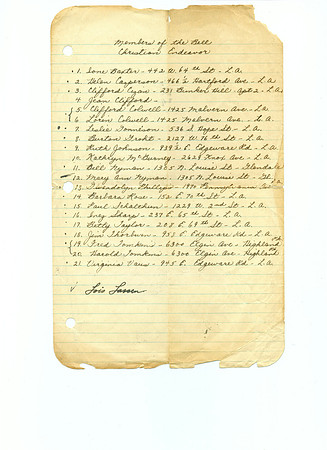 Members of the Bell
Christian Endeavor
1. Ione Baxter - 442 W. 64th St - L.A.
2. Helen Casperson - 466 E. Hartford Ave - L.A.
3. Clifford Cyan - 231 Bunker Hill - Apt 2 - L.A.
4. Jean Clifford -
5. Clifford Colwell - 1425 Malvern Ave - L.A.
6. Loren Colwell - 1425 Malvern Ave. L.A.
7. Leslie - 536 S. Hope St - L.A.
8. Burton - 2127 W. 76th St - L.A.
9. Ruth Johnson - 939 E. Edgeware Rd - L.A.
10. Kathryn McBurney - 2628 Ave - L.A.
11. Bill Nyman - 1305 N. Louise St - Glendale
12. Mary Ann Nyman - 1305 N. Louise St - Gl
13. Gwendolyn Phillips - Pennsylvania
14. Barbara Rose - 152 E. 70th St - L.A.
15. Paul - 1229 W. 2nd St - L.A.
16. Inez Sharp - 237 E. 65th St - L.A.
17. Betty Taylor - 208 E. 69th St - L.A.
18. Jim Thorburn - 953 E. Edgeware Rd - L.A.
19. Fred Tomkins - 6300 Elgin Ave - Highland Pk
20. Harold Tomkins - 6300 Elgin Ave - Highland
21. Virginia - 945 E. Edgeware Rd - L.A.
√ Lois Larsen